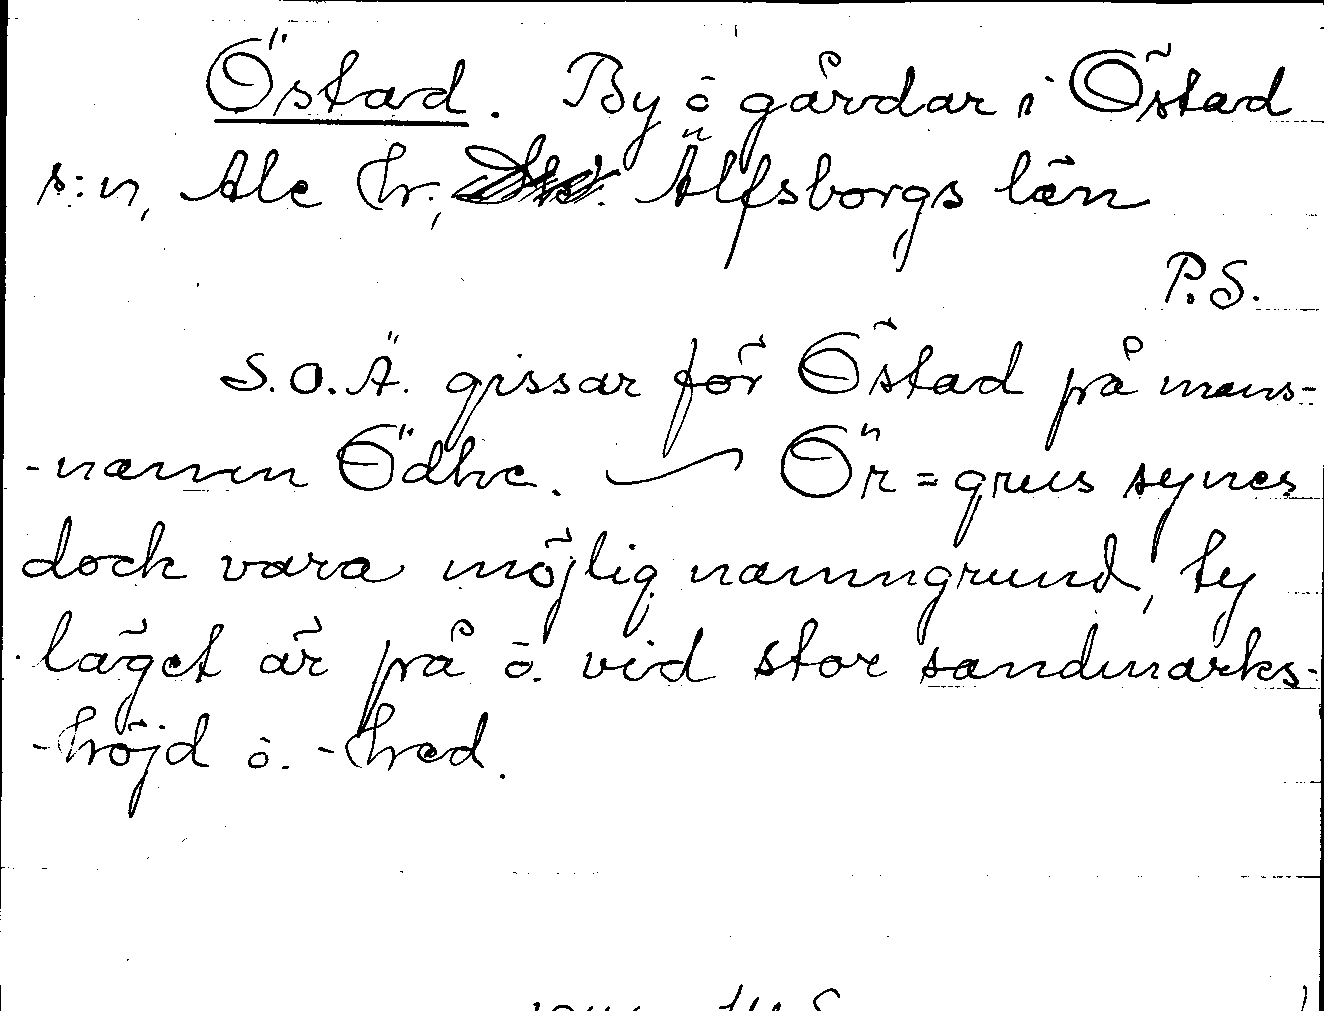 Östad. By ö gårdar i Östad
s:n, Ale hr, Älfsborgs län
P.S.
S.O.Ä. gissar för Östad på mans-
-namn Ödhe. — Ör = grus synes
dock vara möjlig namngrund, ty
läget är på ö. vid stor sandmarks-
-höjd ö. -hed.